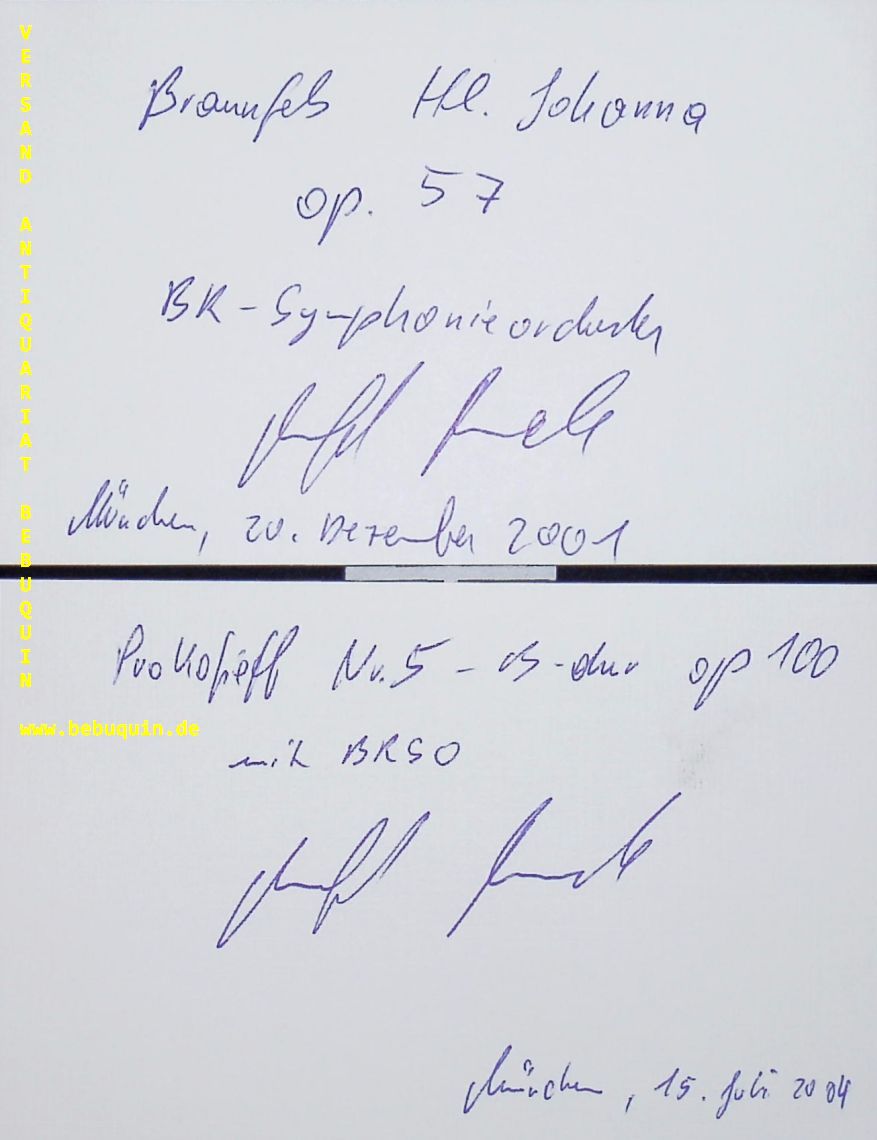 Braunfels Hl. Johanna
op. 57
BR-Symphonieorchester
Manfred Honeck
München, 20. Dezember 2001
Prokofieff Nr. 5 - B-dur op 100
mit BRSO
Manfred Honeck
München, 15. Juli 2004
VERSAND ANTIQUARIAT BEBUQUIN
www.bebuquin.de